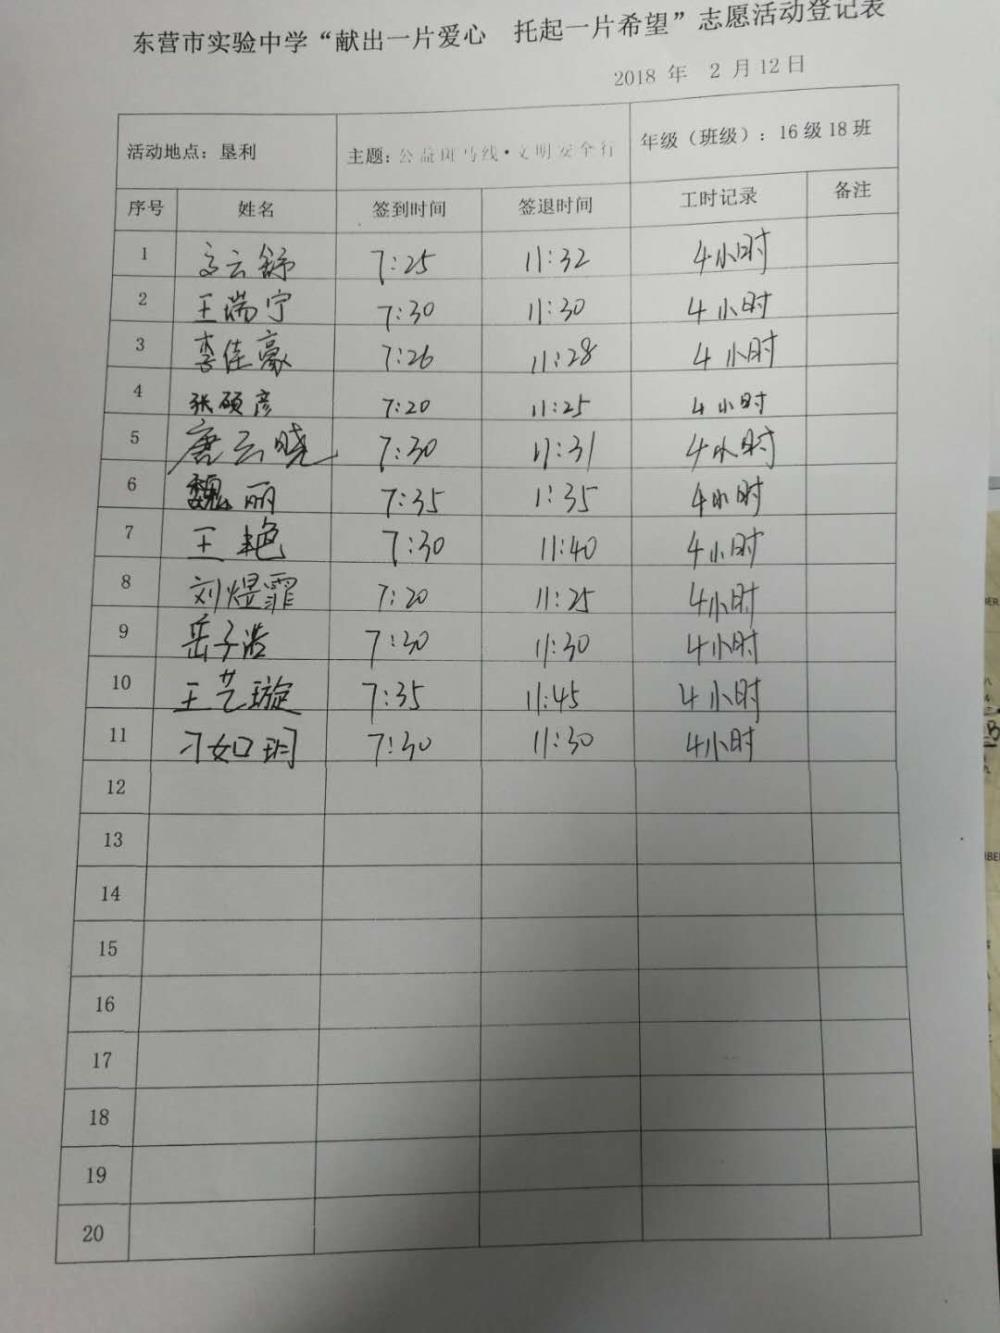 东营市实验中学“献出一片爱心 托起一片希望”志愿活动登记表
2018 年 2 月 12 日
活动地点：垦利 主题：公益斑马线·文明安全行 年级（班级）：16 级 18 班
序号 姓名 签到时间 签退时间 工时记录 备注
1 云舒 7:25 11:32 4小时
2 王瑞宁 7:30 11:30 4小时
3 李佳豪 7:26 11:28 4小时
4 张硕彦 7:20 11:25 4小时
5 唐云晓 7:30 11:31 4小时
6 魏丽 7:35 1:35 4小时
7 王艳 7:30 11:40 4小时
8 刘煜霏 7:20 11:25 4小时
9 岳子浩 7:30 11:30 4小时
10 王艺璇 7:35 11:45 4小时
11 刁如玥 7:30 11:30 4小时
12
13
14
15
16
17
18
19
20